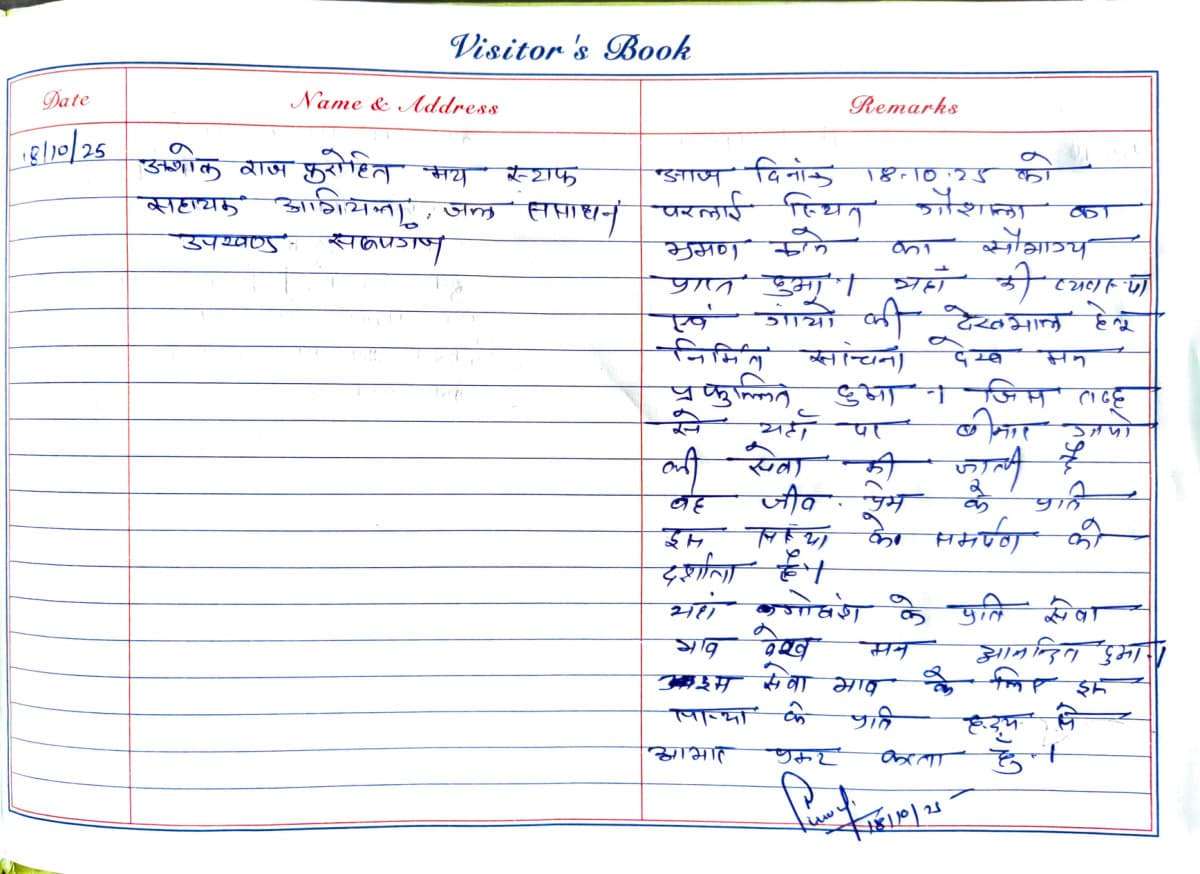 Visitor's Book
Date
Name & Address
Remarks
18/10/25
अशोक राज पुरोहित मय स्टाफ
सहायक अभियन्ता, जल संसाधन
उपखण्ड सरूपगंज
आज दिनांक 18.10.25 को
परलाई स्थित गौशाला का
भ्रमण करने का सौभाग्य
प्राप्त हुआ। यहां की व्यवस्था
एवं गायों की देखभाल हेतु
निर्मित संरचना देख मन
प्रफुल्लित हुआ। जिस तरह
से यहाँ पर बीमार गायो
की सेवा की जाती है
वह जीव प्रेम के प्रति
इस संस्था के समर्पण को
दर्शाता है।
यहां गोवंश के प्रति सेवा
भाव देख मन आनन्दित हुआ।
इस सेवा भाव के लिए इस
संस्था के प्रति हृदय से
आभार प्रकट करता हूँ।
18/10/25